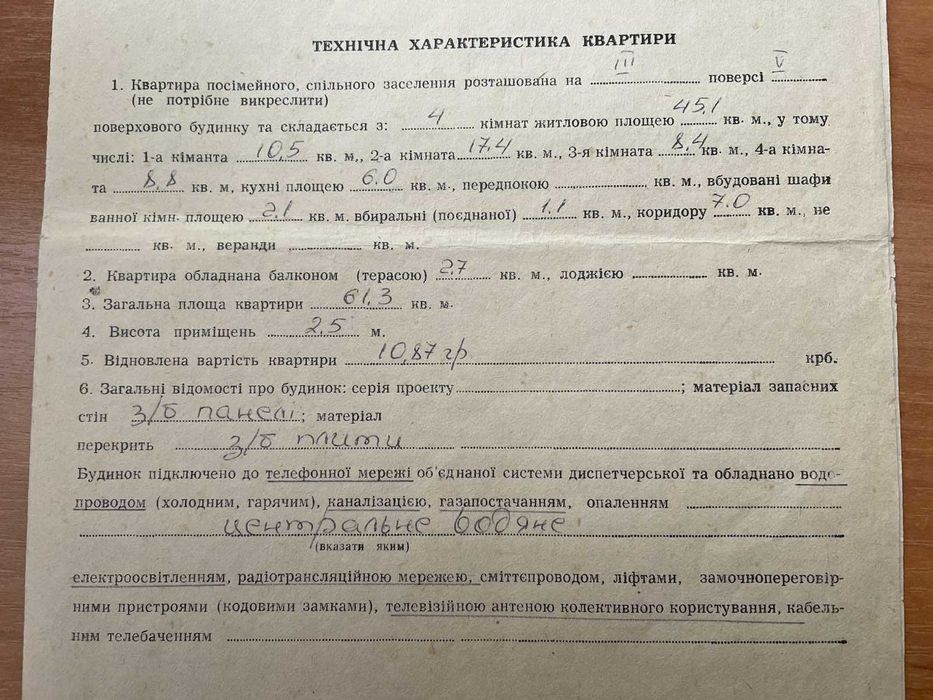 ТЕХНІЧНА ХАРАКТЕРИСТИКА КВАРТИРИ
1. Квартира посімейного, спільного заселення розташована на III поверсі V
(не потрібне викреслити)
поверхового будинку та складається з: 4 кімнат житловою площею 45,1 кв. м., у тому
числі: 1-а кіманта 10,5 кв. м., 2-а кімната 17.4 кв. м., 3-я кімната 8,4 кв. м., 4-а кімна-
та 8,8 кв. м, кухні площею 6.0 кв. м., передпокою кв. м., вбудовані шафи
ванної кімн. площею 2,1 кв. м. вбиральні (поєднаної) 1,1 кв. м., коридору 7.0 кв. м., не
кв. м., веранди кв. м.
2. Квартира обладнана балконом (терасою) 2,7 кв. м., лоджією кв. м.
3. Загальна площа квартири 61,3 кв. м.
4. Висота приміщень 2,5 м.
5. Відновлена вартість квартири 10,87 гр. крб.
6. Загальні відомості про будинок: серія проекту ; матеріал запасних
стін з/б панелі ; матеріал
перекрить з/б плити
Будинок підключено до телефонної мережі об'єднаної системи диспетчерської та обладнано водо-
проводом (холодним, гарячим), каналізацією, газапостачанням, опаленням
центральне водяне
(вказати яким)
електроосвітленням, радіотрансляційною мережею, сміттєпроводом, ліфтами, замочнопереговір-
ними пристроями (кодовими замками), телевізійною антеною колективного користування, кабель-
ним телебаченням